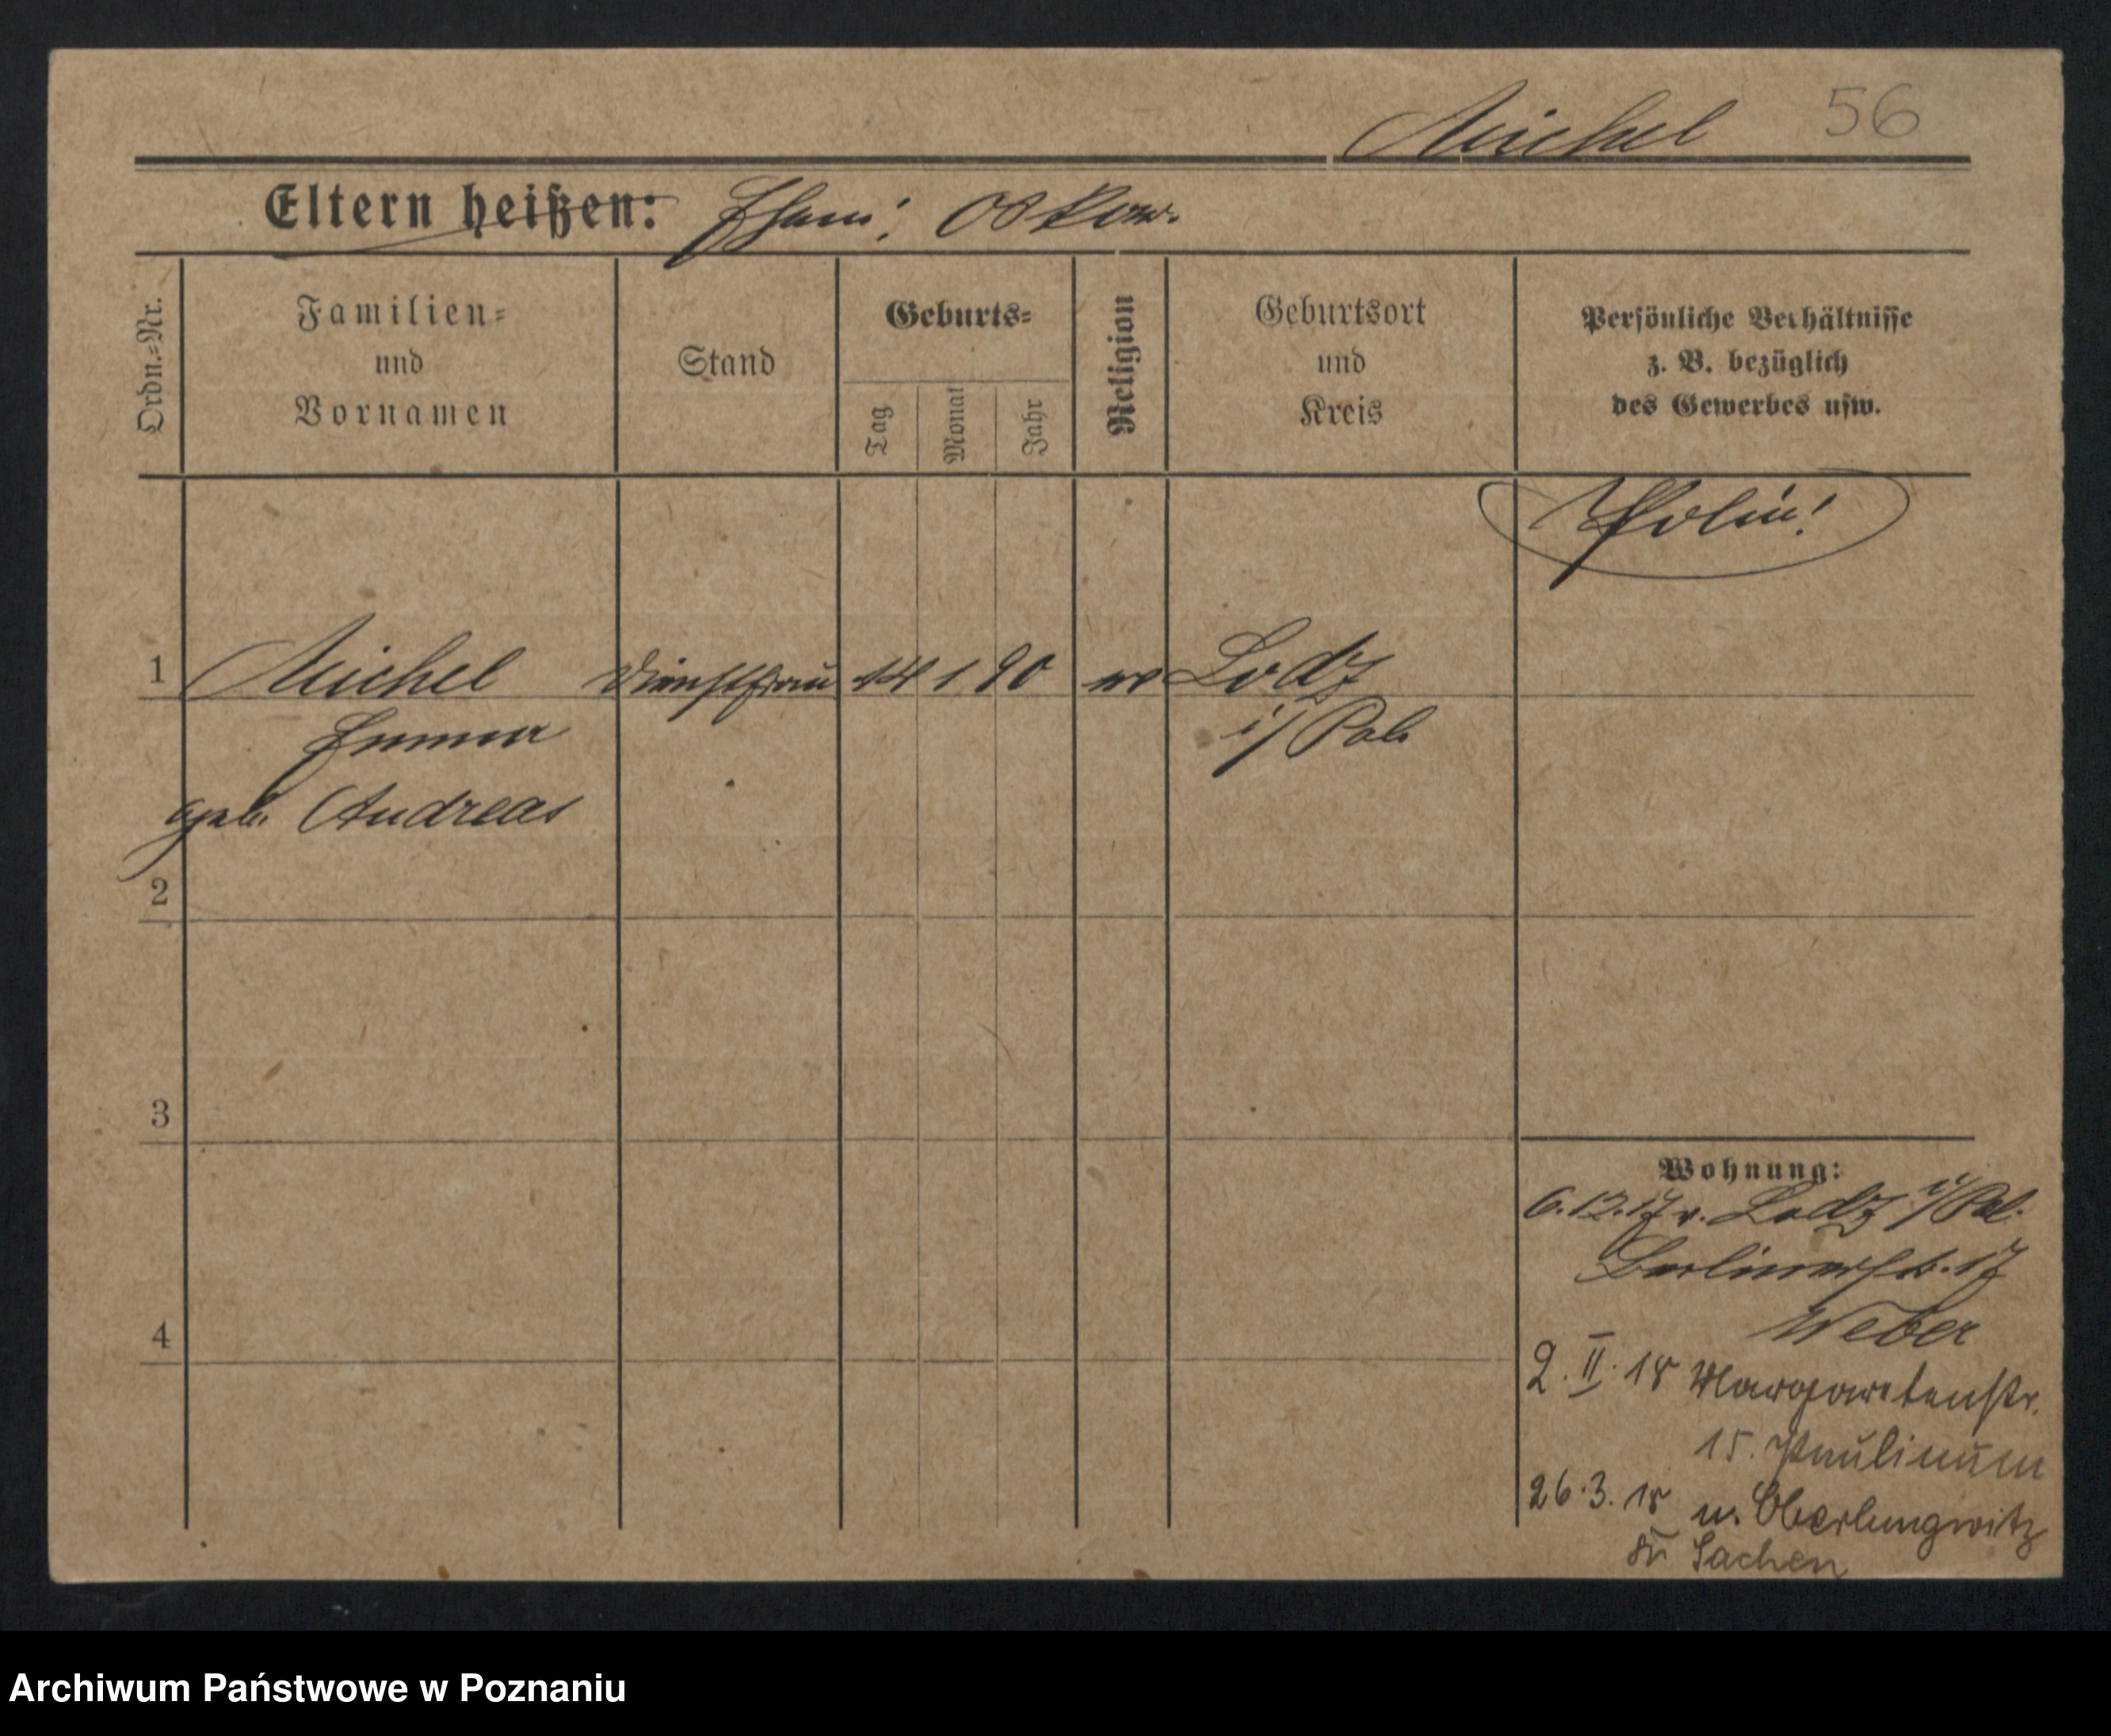 Michel 56
Eltern heißen: Ehem: Oskar.
Ordn.=Nr.
Familien=
und
Vornamen
Stand
Geburts=
Tag
Monat
Jahr
Religion
Geburtsort
und
Kreis
Persönliche Verhältnisse
z. B. bezüglich
des Gewerbes usw.
Polin!
1 Michel 14 1 90 Lodz
Emma i/ Pol.
geb. Andreas
2
3
4
Wohnung:
6.12.17 v. Lodz i/Pol.
Berlinerstr. 17
Weber
2. II. 18 Margaretenstr.
15. Paulinum
26.3.18 n. Oberlungwitz
Sachen
Archiwum Państwowe w Poznaniu